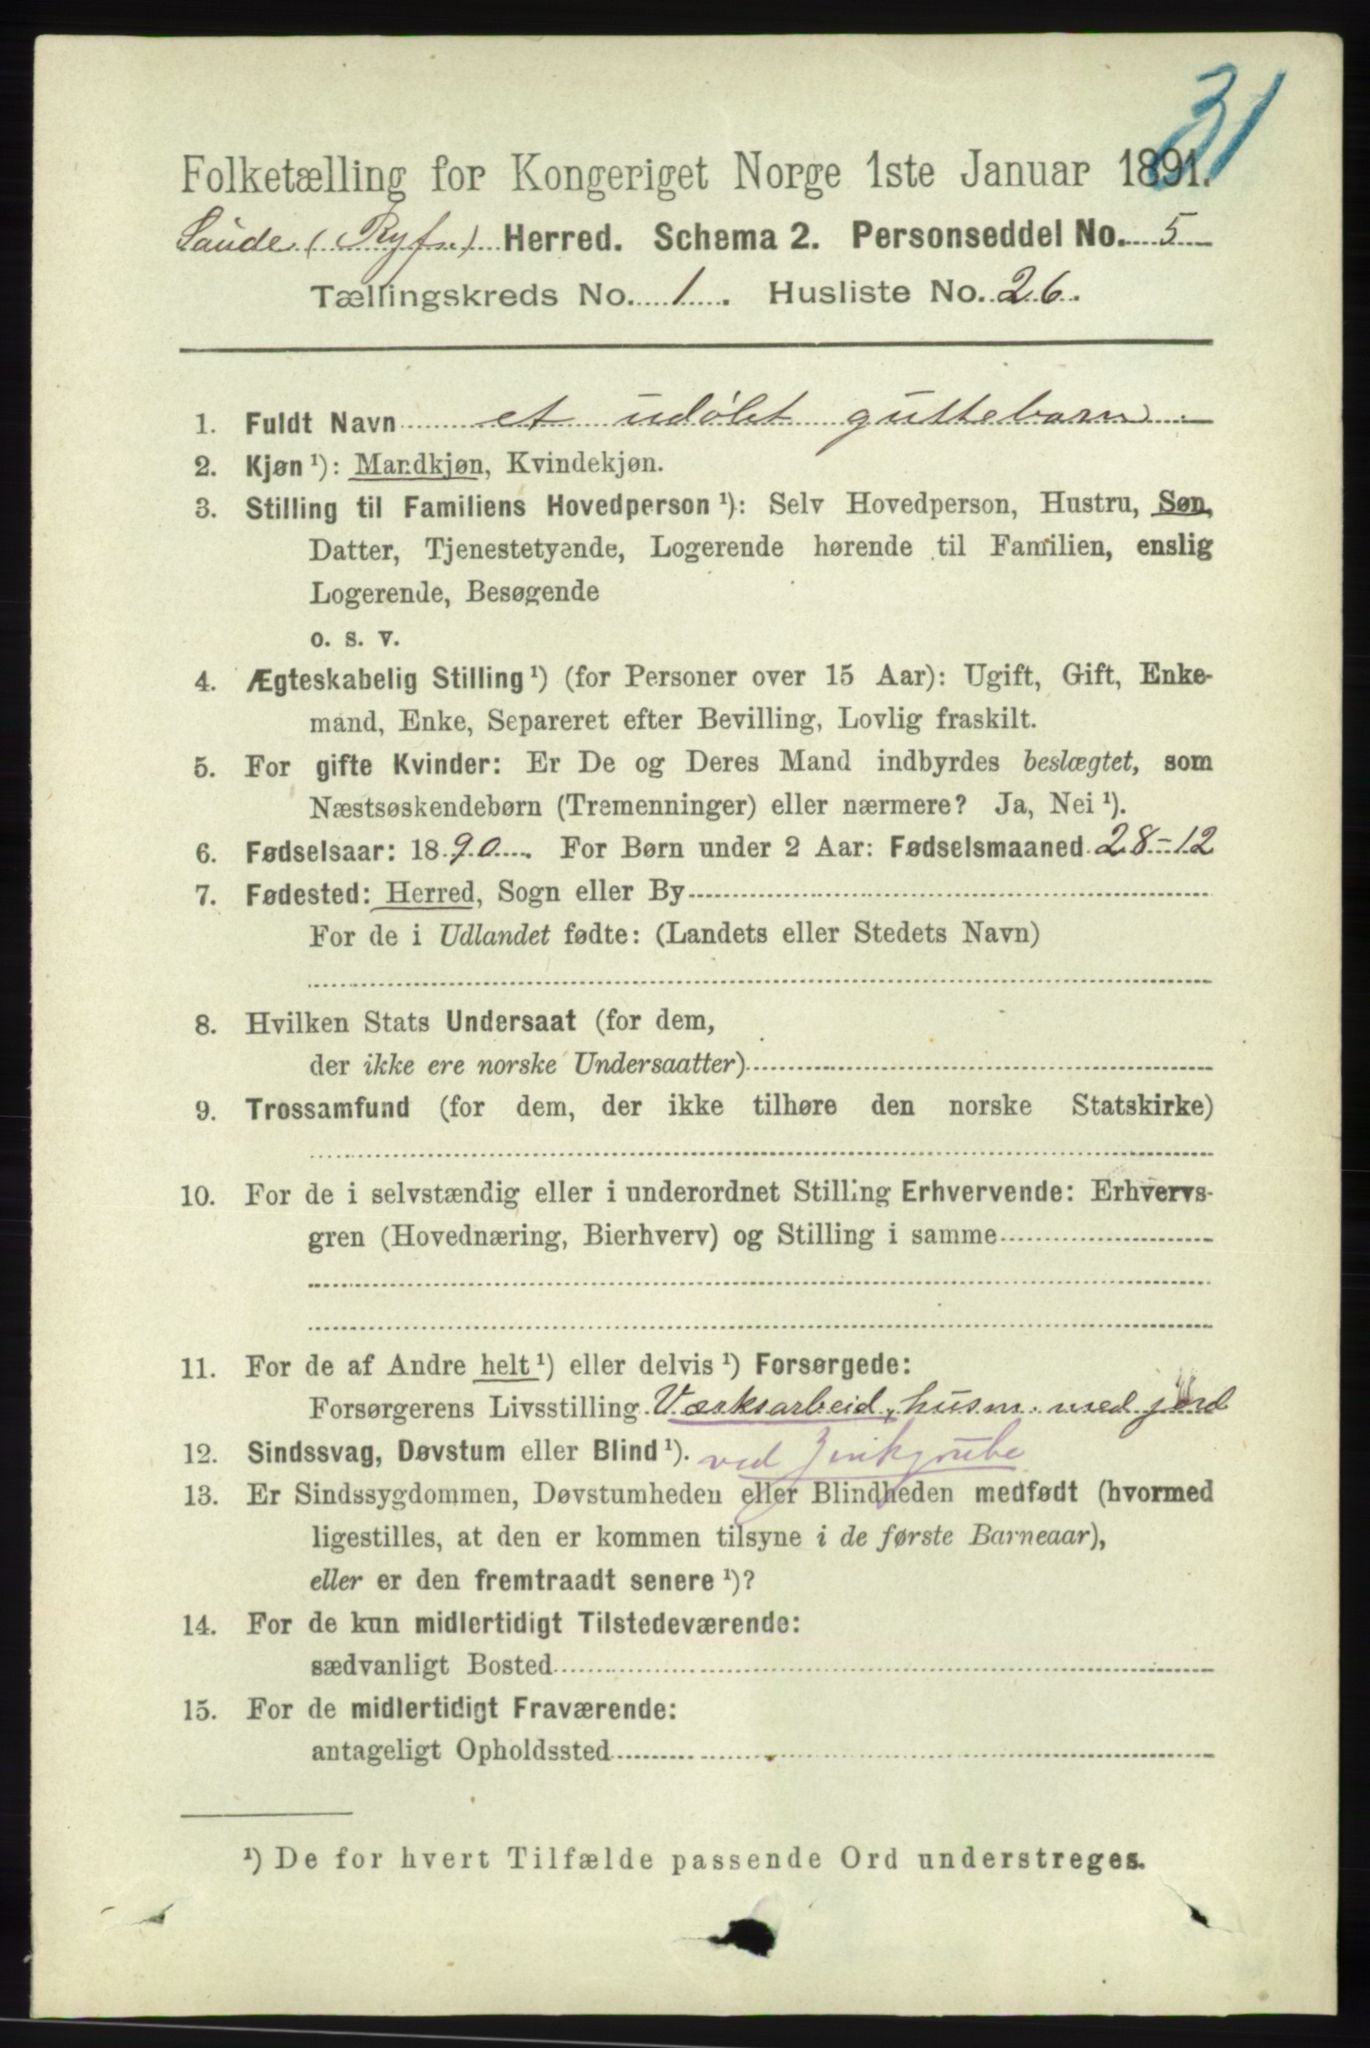 31
Folketælling for Kongeriget Norge 1ste Januar 1891.
Saude (Ryf..) Herred. Schema 2. Personseddel No. 5
Tællingskreds No. 1. Husliste No. 26.
1. Fuldt Navn et udøbt guttebarn
2. Kjøn ¹): Mandkjøn, Kvindekjøn.
3. Stilling til Familiens Hovedperson ¹): Selv Hovedperson, Hustru, Søn,
Datter, Tjenestetyende, Logerende hørende til Familien, enslig
Logerende, Besøgende
o. s. v.
4. Ægteskabelig Stilling ¹) (for Personer over 15 Aar): Ugift, Gift, Enke-
mand, Enke, Separeret efter Bevilling, Lovlig fraskilt.
5. For gifte Kvinder: Er De og Deres Mand indbyrdes beslægtet, som
Næstsøskendebørn (Tremenninger) eller nærmere? Ja, Nei ¹).
6. Fødselsaar: 1890. For Børn under 2 Aar: Fødselsmaaned 28-12
7. Fødested: Herred, Sogn eller By
For de i Udlandet fødte: (Landets eller Stedets Navn)
8. Hvilken Stats Undersaat (for dem,
der ikke ere norske Undersaatter)
9. Trossamfund (for dem, der ikke tilhøre den norske Statskirke)
10. For de i selvstændig eller i underordnet Stilling Erhvervende: Erhvervs-
gren (Hovednæring, Bierhverv) og Stilling i samme
11. For de af Andre helt ¹) eller delvis ¹) Forsørgede:
Forsørgerens Livsstilling Værksarbeid, husm. med jord
12. Sindssvag, Døvstum eller Blind ¹). ved Zinkgrube
13. Er Sindssygdommen, Døvstumheden eller Blindheden medfødt (hvormed
ligestilles, at den er kommen tilsyne i de første Barneaar),
eller er den fremtraadt senere ¹)?
14. For de kun midlertidigt Tilstedeværende:
sædvanligt Bosted
15. For de midlertidigt Fraværende:
antageligt Opholdssted
¹) De for hvert Tilfælde passende Ord understreges.